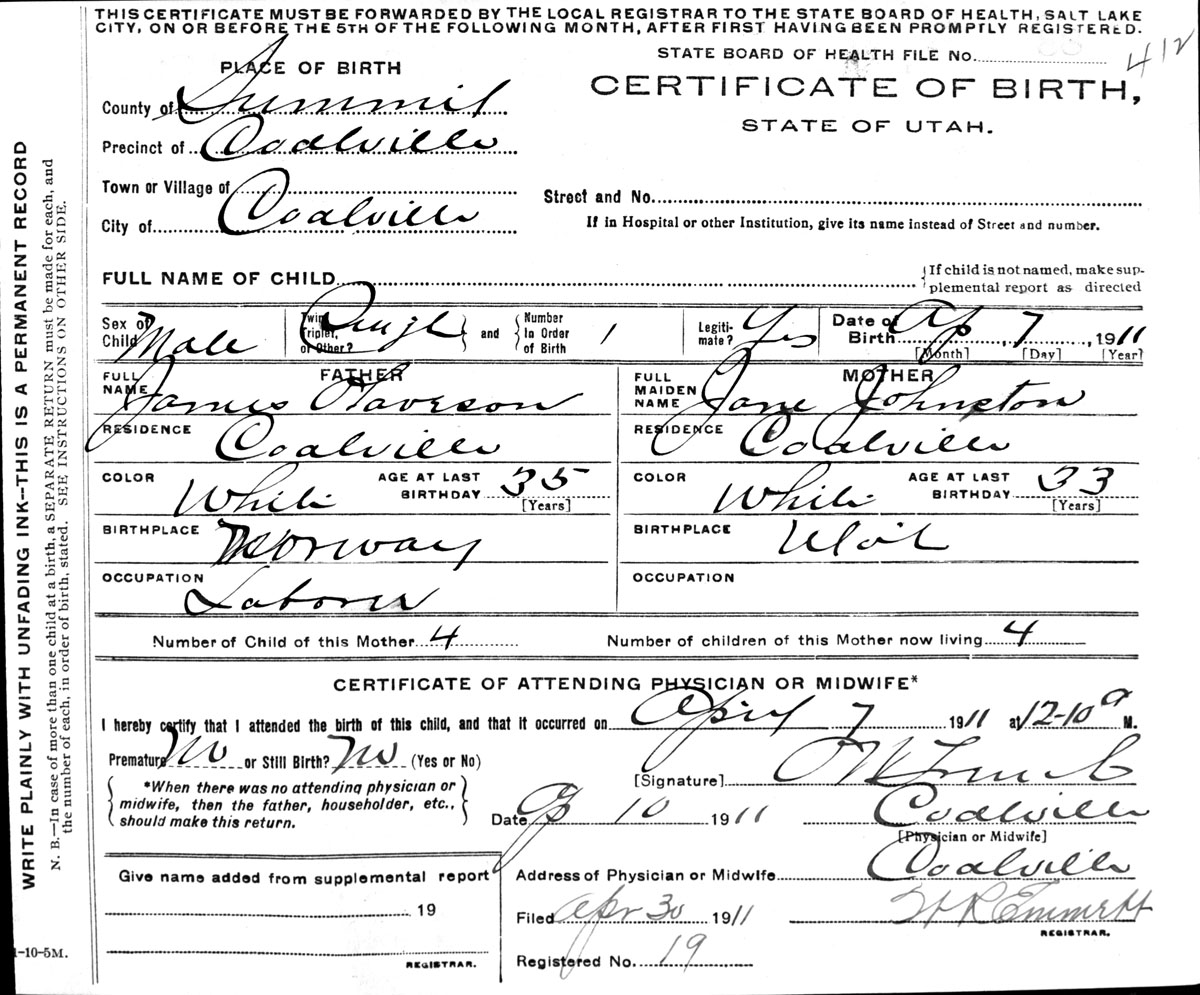 THIS CERTIFICATE MUST BE FORWARDED BY THE LOCAL REGISTRAR TO THE STATE BOARD OF HEALTH, SALT LAKE
CITY, ON OR BEFORE THE 5TH OF THE FOLLOWING MONTH, AFTER FIRST HAVING BEEN PROMPTLY REGISTERED.
STATE BOARD OF HEALTH FILE No. 412
PLACE OF BIRTH
CERTIFICATE OF BIRTH,
STATE OF UTAH.
County of Summit
Precinct of Coalville
Town or Village of
City of Coalville
Street and No.
If in Hospital or other Institution, give its name instead of Street and number.
FULL NAME OF CHILD
{If child is not named, make sup-
plemental report as directed
Sex of Child Male
Twin, Triplet, or Other? Single } and { Number In Order of Birth 1
Legiti-mate? Yes
Date of Birth Ap 7, 1911
[Month] [Day] [Year]
FATHER
FULL NAME James Olaveson
RESIDENCE Coalville
COLOR White AGE AT LAST BIRTHDAY 35
[Years]
BIRTHPLACE Norway
OCCUPATION Laborer
MOTHER
FULL MAIDEN NAME Jane Johnston
RESIDENCE Coalville
COLOR White AGE AT LAST BIRTHDAY 33
[Years]
BIRTHPLACE Utah
OCCUPATION
Number of Child of this Mother 4 Number of children of this Mother now living 4
CERTIFICATE OF ATTENDING PHYSICIAN OR MIDWIFE*
I hereby certify that I attended the birth of this child, and that it occurred on April 7 1911 at 12-10 a M.
Premature No or Still Birth? No (Yes or No)
[Signature]
*When there was no attending physician or
midwife, then the father, householder, etc.,
should make this return.
Date Ap 10 1911 Coalville
[Physician or Midwife]
Give name added from supplemental report
19
REGISTRAR.
Address of Physician or Midwife Coalville
Filed Apr 30 1911 H R Emmett
REGISTRAR.
Registered No. 19
WRITE PLAINLY WITH UNFADING INK—THIS IS A PERMANENT RECORD
N. B.—In case of more than one child at a birth, a SEPARATE RETURN must be made for each, and
the number of each, in order of birth, stated. SEE INSTRUCTIONS ON OTHER SIDE.
1-10-5M.